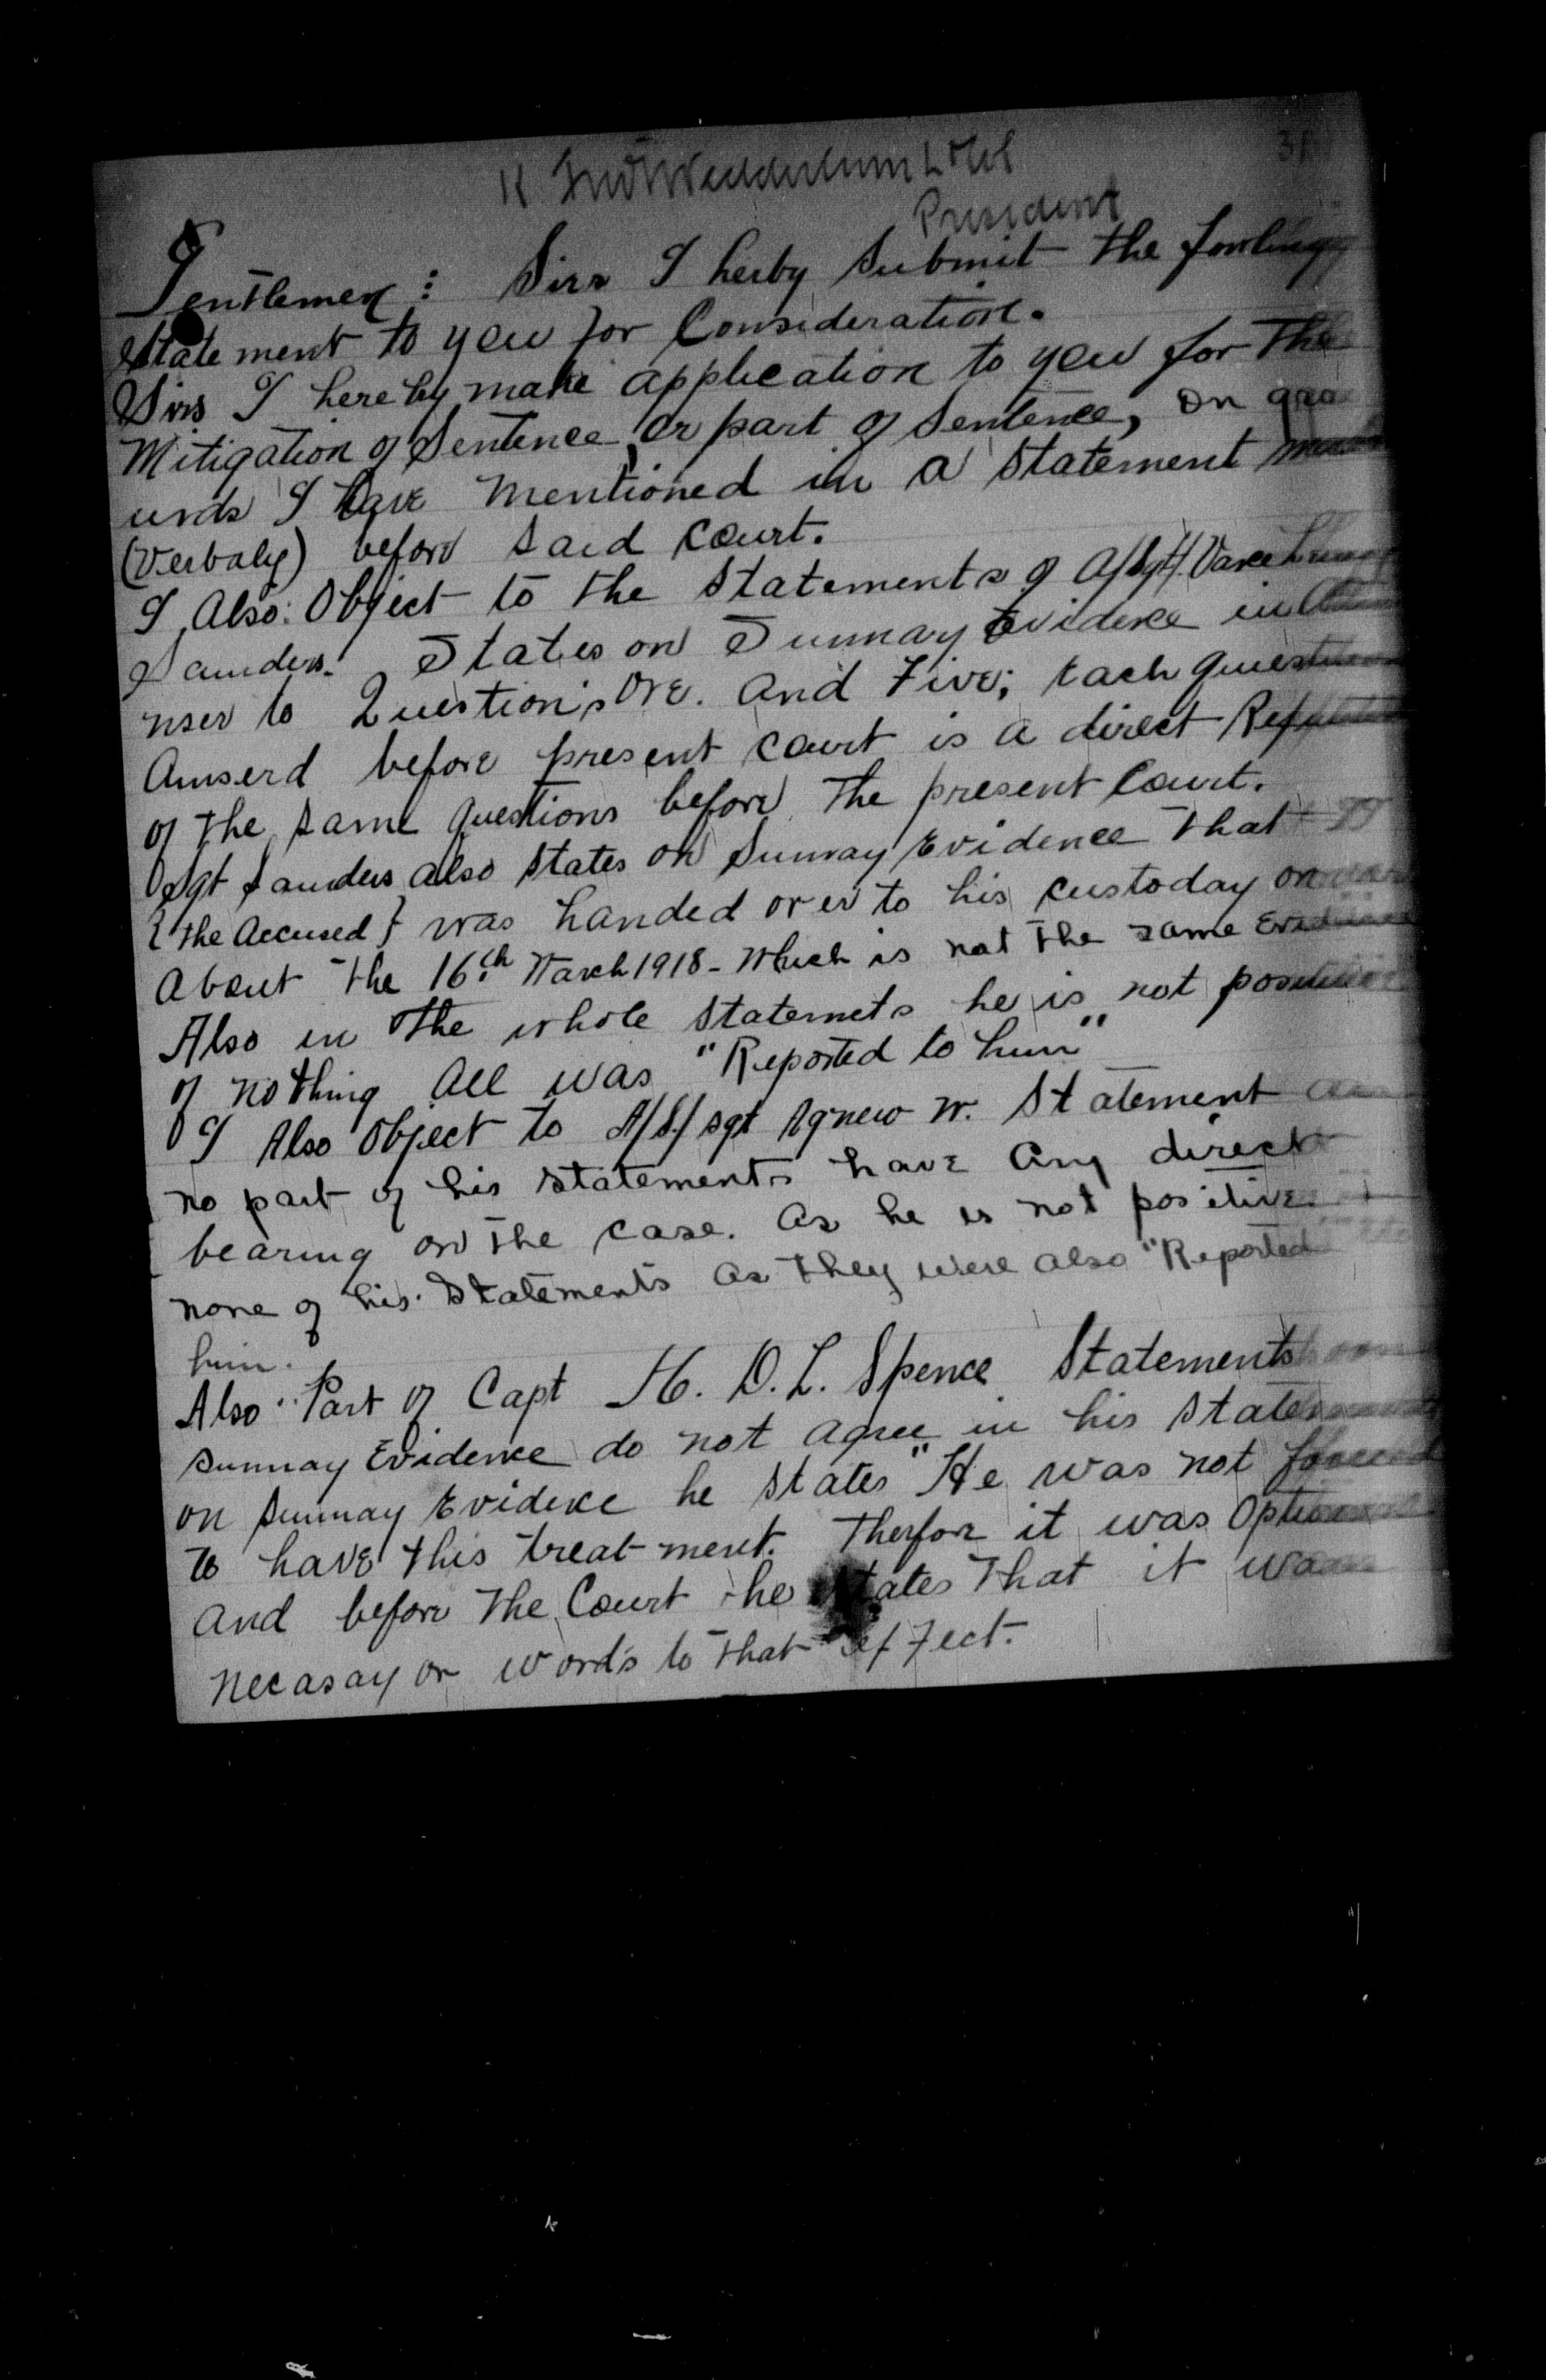 President
Gentlemen: Sirs I herby Submit the fowling
Statement to you for Consideration.
Sirs I hereby make application to you for the
Mitigation of Sentence, or part of Sentence, on gro
unds I have mentioned in a statement
(Verbaly) before said court.
I Also: Object to the Statements of A/Sgt H.
Saunders. States on Summay Evidence in
nser to Question's One. and Five; Each question
Annserd before present court is a direct
of the same questions before the present Court.
Sgt Saunders also states on Summay Evidence that
{the Accused} was handed over to his custoday on
About the 16th March 1918 - which is not the same Evidence
Also in the whole statemets he is not positive
of nothing All was "Reported to him"
I Also Object to A/S/sgt Agnew W. Statement
no part of his statements have any direct
bearing on the case. As he is not positive
none of his statements as they were also "Reported
him.
Also Part of Capt H. D. L. Spence Statements
Summay Evidence do not agree in his Statement
on Summay Evidence he states "He was not forced
to have this treat-ment. Therfore it was Optional
and before the Court he states that it was
necasay or words to that effect.